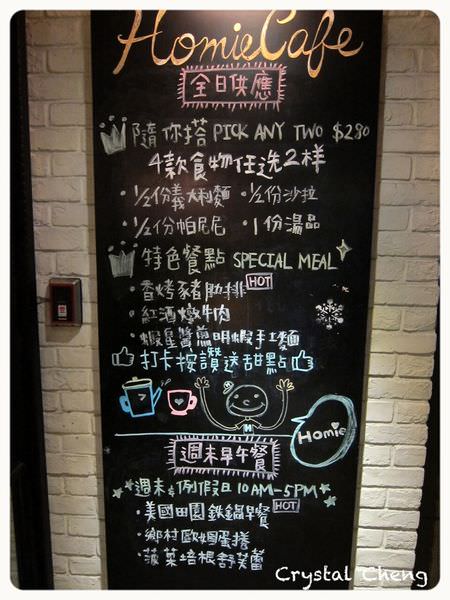 Homie Cafe
全日供應
隨你搭 PICK ANY TWO $280
4款食物任选2样
·1/2份義大利麵 ·1/2份沙拉
·1/2份帕尼尼 ·1份湯品
特色餐點 SPECIAL MEAL
·香烤豬肋排 HOT
·紅酒燉牛肉
·蝦皇醬煎明蝦手工麵
打卡按讚送甜點
Homie
週末早午餐
週末&例假日 10AM-5PM
·美國田園鉄鍋早餐 HOT
·鄉村歐姆蛋捲
·菠菜培根舒芙蕾
Crystal Cheng